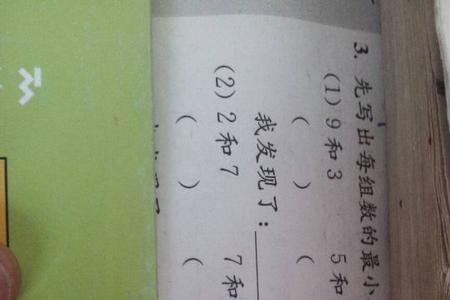 3. 先写出每组数的最小
(1) 9 和 3 5 和
( ) (
我发现了:
(2) 2 和 7 7 和
( ) (